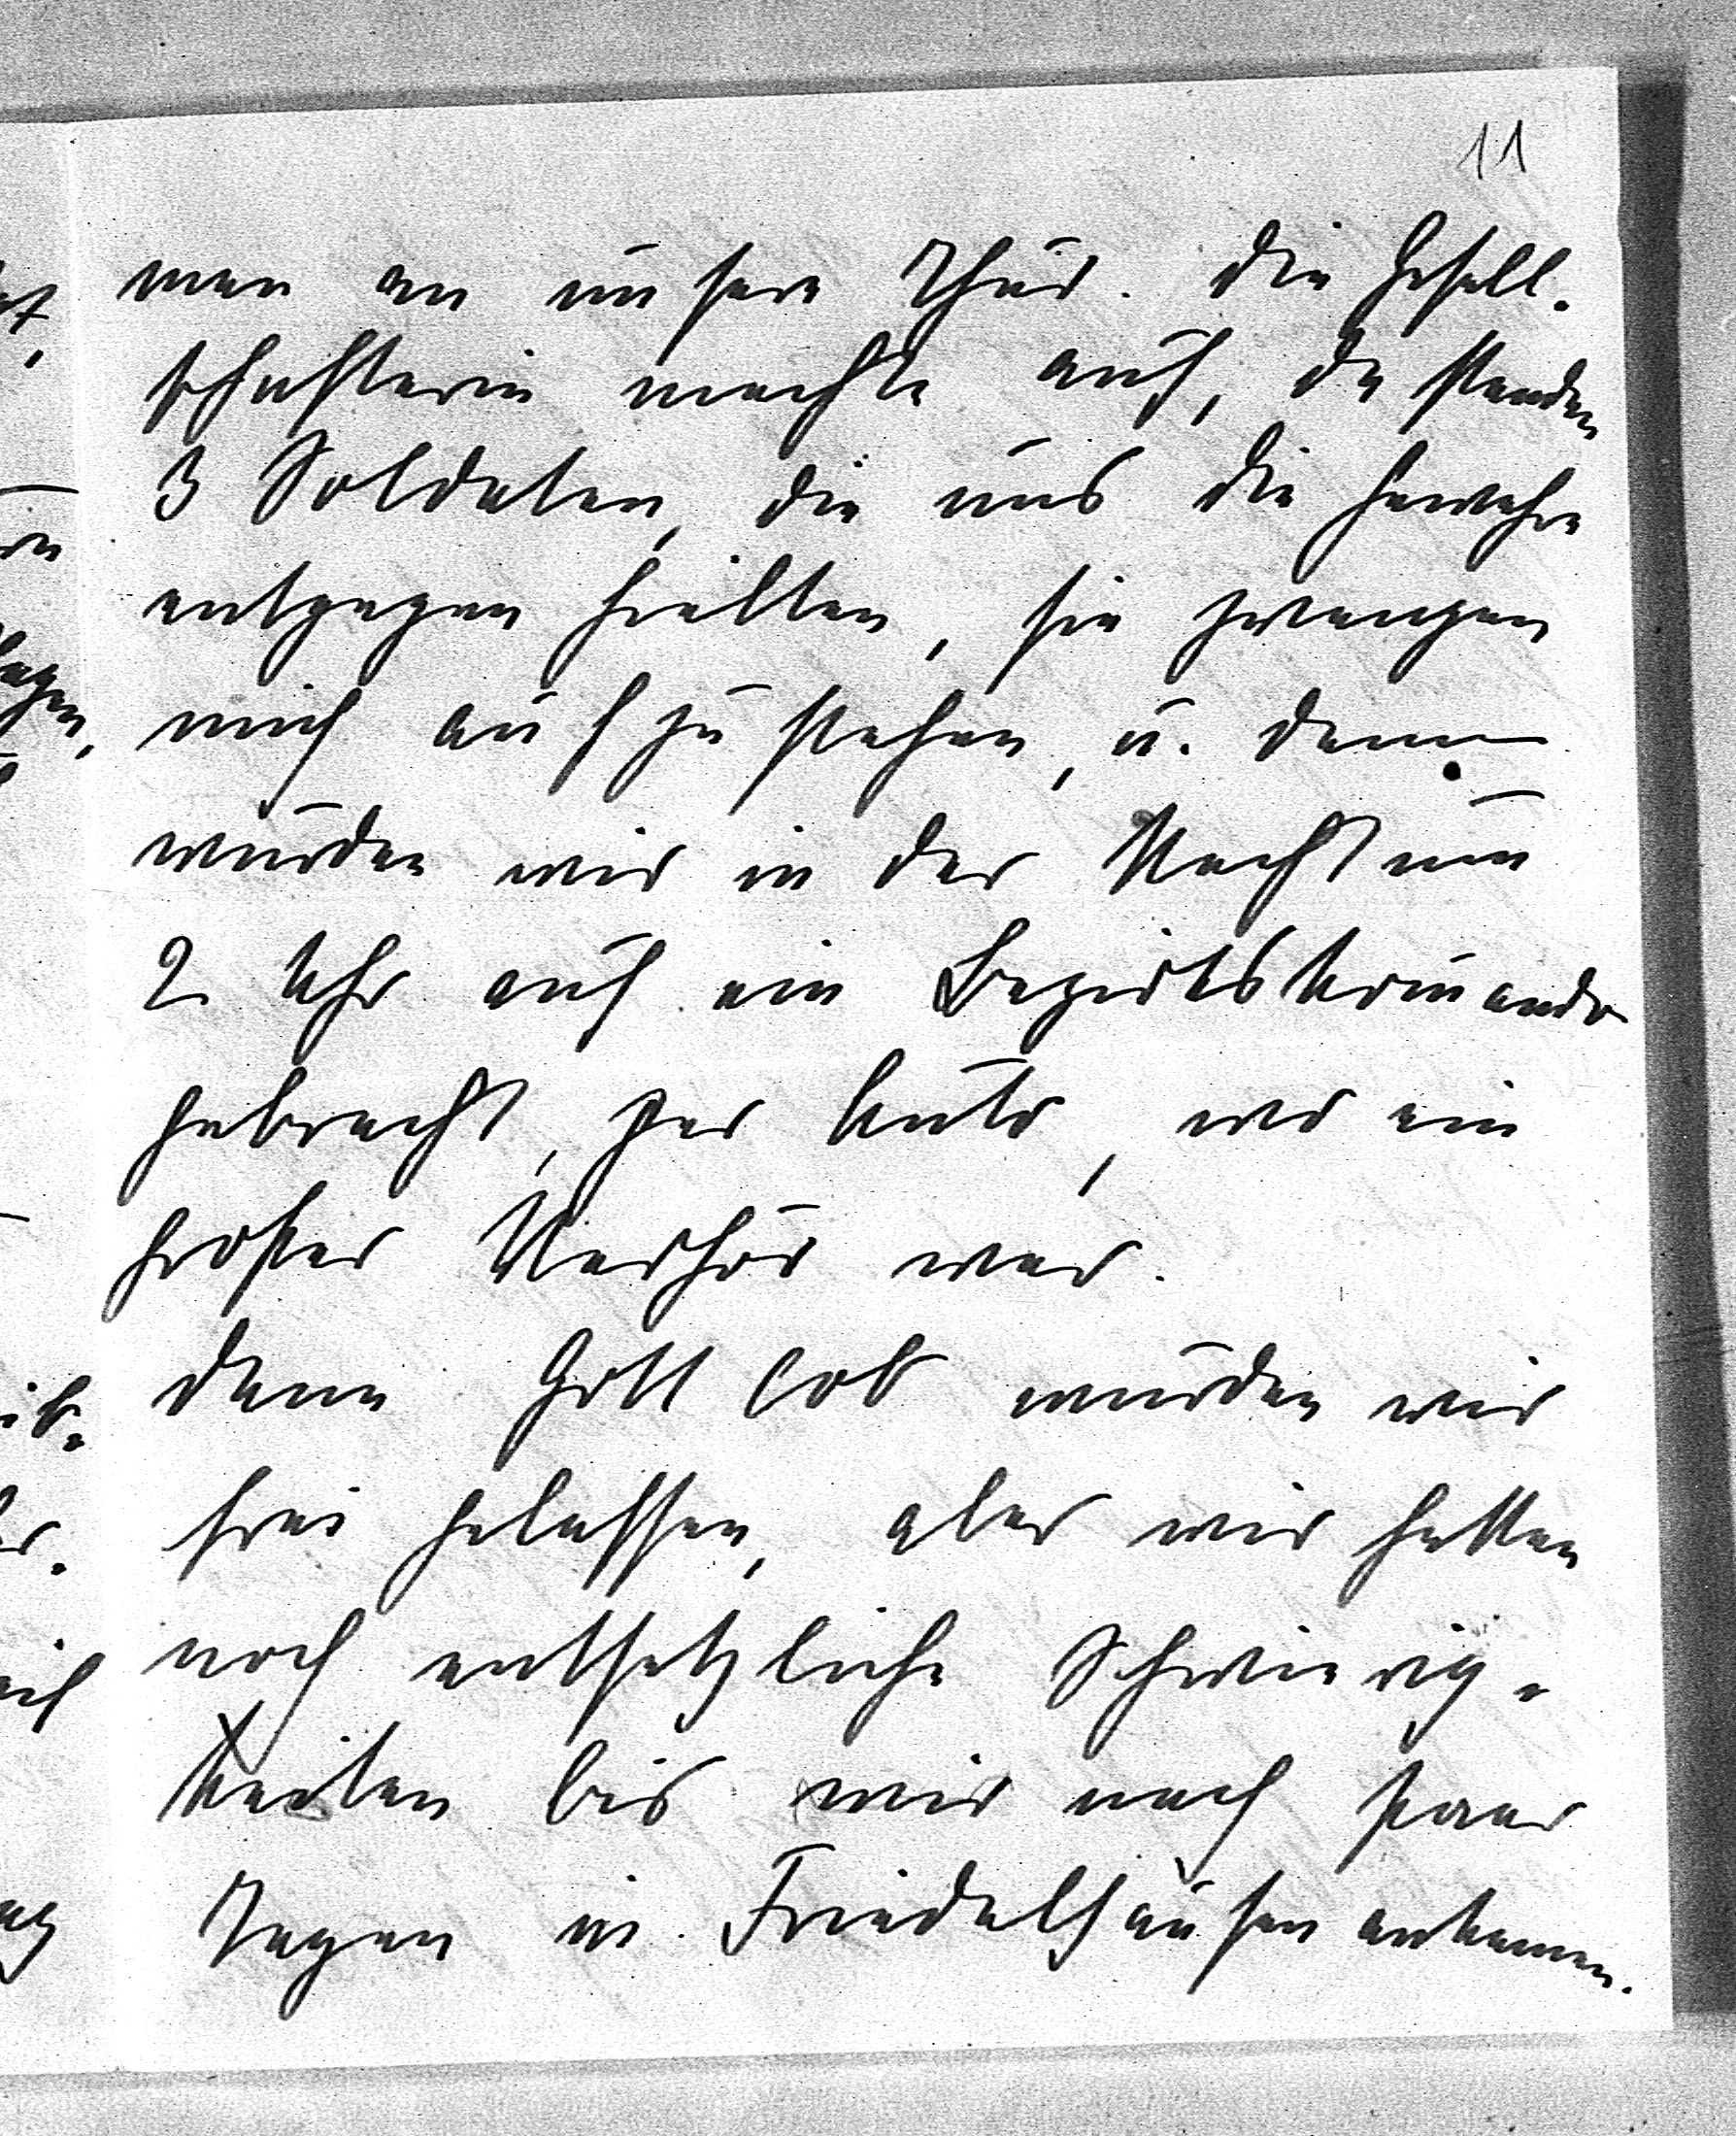 11
man an unsere Thür. Die Gesell-
schafterin machte auf, da standen
3 Soldaten, die uns die Gewehre
entgegen hielten, sie zwangen
mich aufzustehen, u. dann
wurden wir in der Nacht um
2 Uhr auf ein Bezirkskom̄ando
gebracht, per Auto, wo ein
großes Verhör war.
Dann Gott lob wurden wir
frei gelassen, aber wir hatten
noch entsetzliche Schwierig-
keiten bis wir nach paar
Tagen in Friedelhausen ankamen.